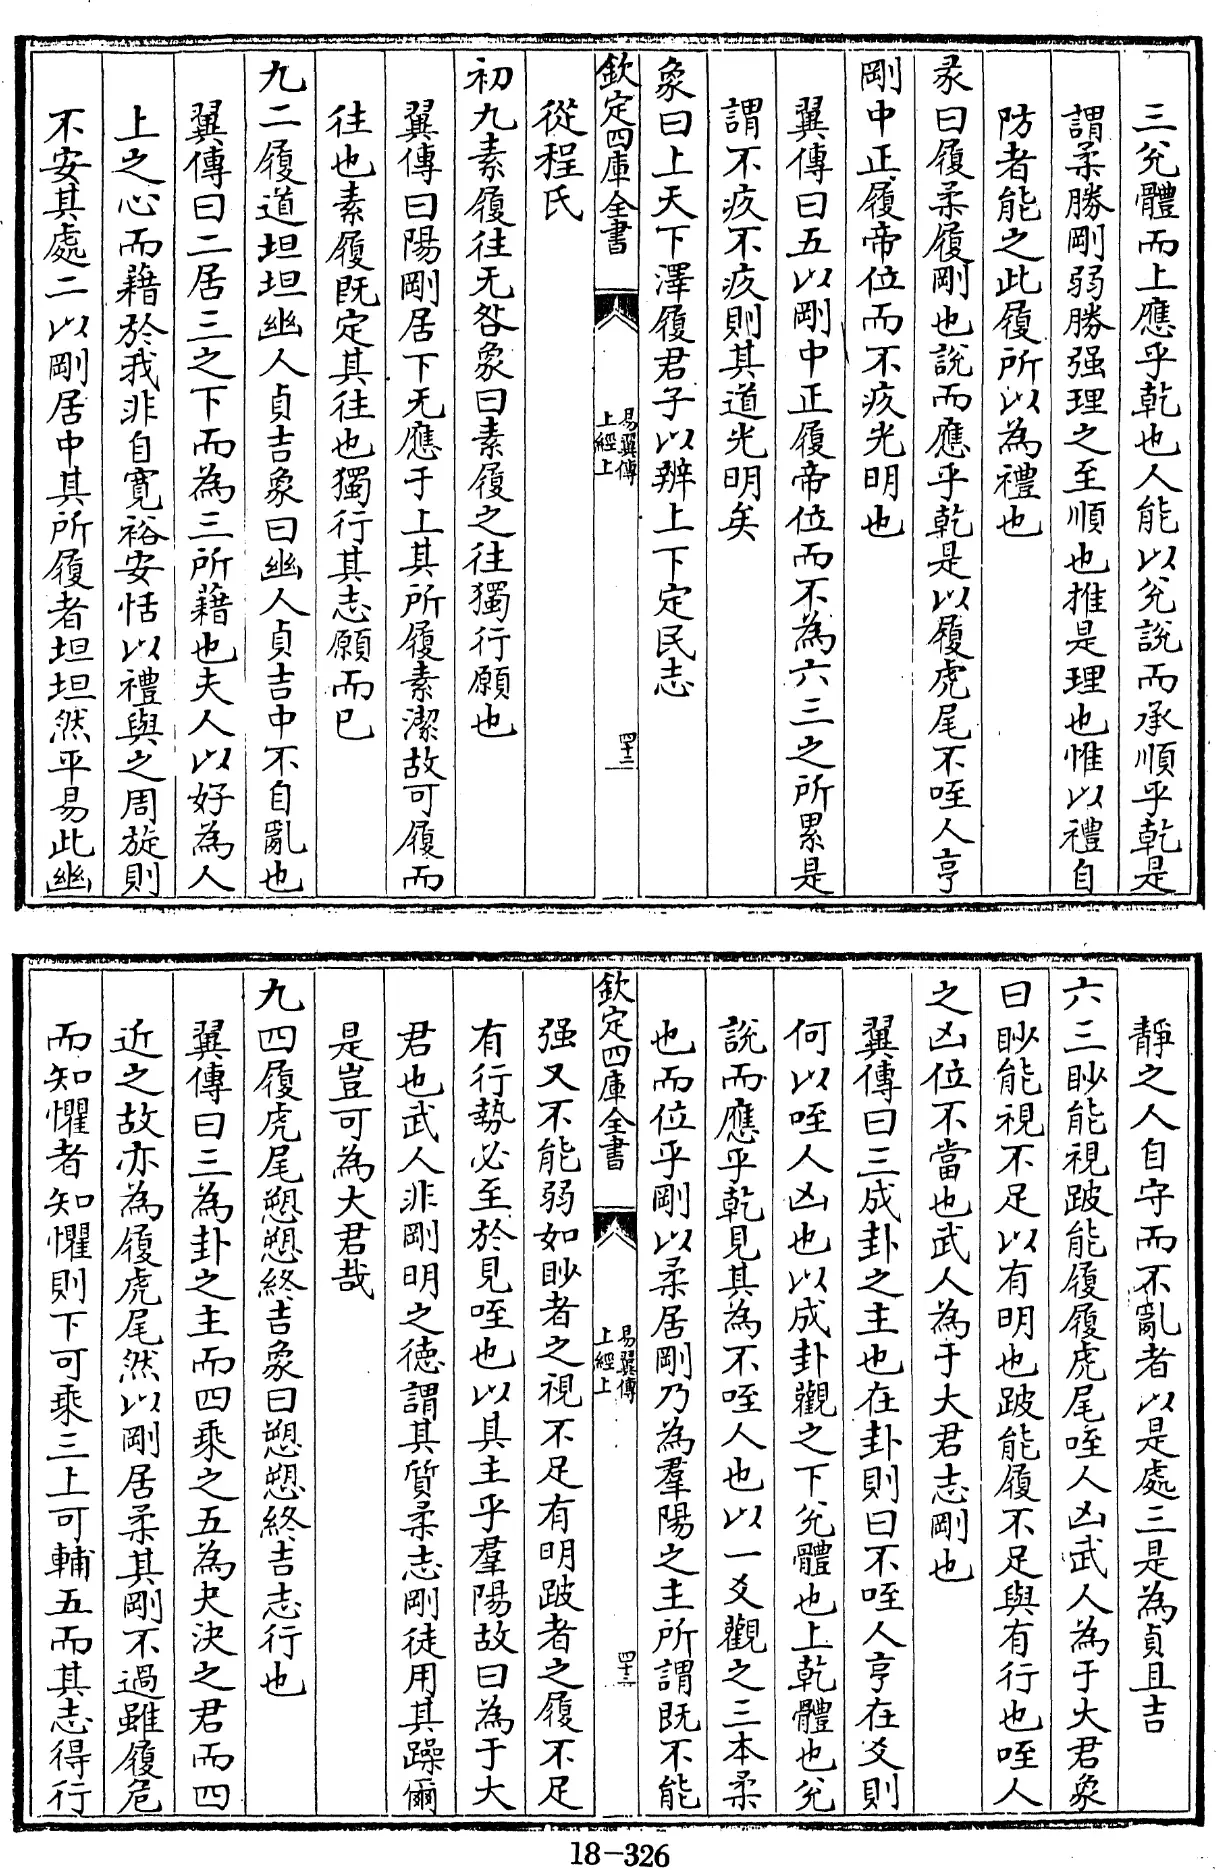 三兊體而上應乎乾也人能以兊說而承順乎乾是
謂柔勝剛弱勝强理之至順也推是理也惟以禮自
防者能之此履所以為禮也
彖曰履柔履剛也說而應乎乾是以履虎尾不咥人亨
剛中正履帝位而不疚光明也
翼傳曰五以剛中正履帝位而不為六三之所累是
謂不疚不疚則其道光明矣
象曰上天下澤履君子以辨上下定民志
欽定四庫全書
易翼傳
上經上
四十二
從程氏
初九素履往无咎象曰素履之往獨行願也
翼傳曰陽剛居下无應于上其所履素潔故可履而
往也素履既定其往也獨行其志願而已
九二履道坦坦幽人貞吉象曰幽人貞吉中不自亂也
翼傳曰二居三之下而為三所藉也夫人以好為人
上之心而藉於我非自寬裕安恬以禮與之周旋則
不安其處二以剛居中其所履者坦坦然平易此幽
靜之人自守而不亂者以是處三是為貞且吉
六三眇能視跛能履履虎尾咥人凶武人為于大君象
曰眇能視不足以有明也跛能履不足與有行也咥人
之凶位不當也武人為于大君志剛也
翼傳曰三成卦之主也在卦則曰不咥人亨在爻則
何以咥人凶也以成卦觀之下兊體也上乾體也兊
說而應乎乾見其為不咥人也以一爻觀之三本柔
也而位乎剛以柔居剛乃為羣陽之主所謂既不能
欽定四庫全書
易翼傳
上經上
四十三
强又不能弱如眇者之視不足有明跛者之履不足
有行勢必至於見咥也以其主乎羣陽故曰為于大
君也武人非剛明之德謂其質柔志剛徒用其躁爾
是豈可為大君哉
九四履虎尾愬愬終吉象曰愬愬終吉志行也
翼傳曰三為卦之主而四乘之五為夬決之君而四
近之故亦為履虎尾然以剛居柔其剛不過雖履危
而知懼者知懼則下可乘三上可輔五而其志得行
18-326